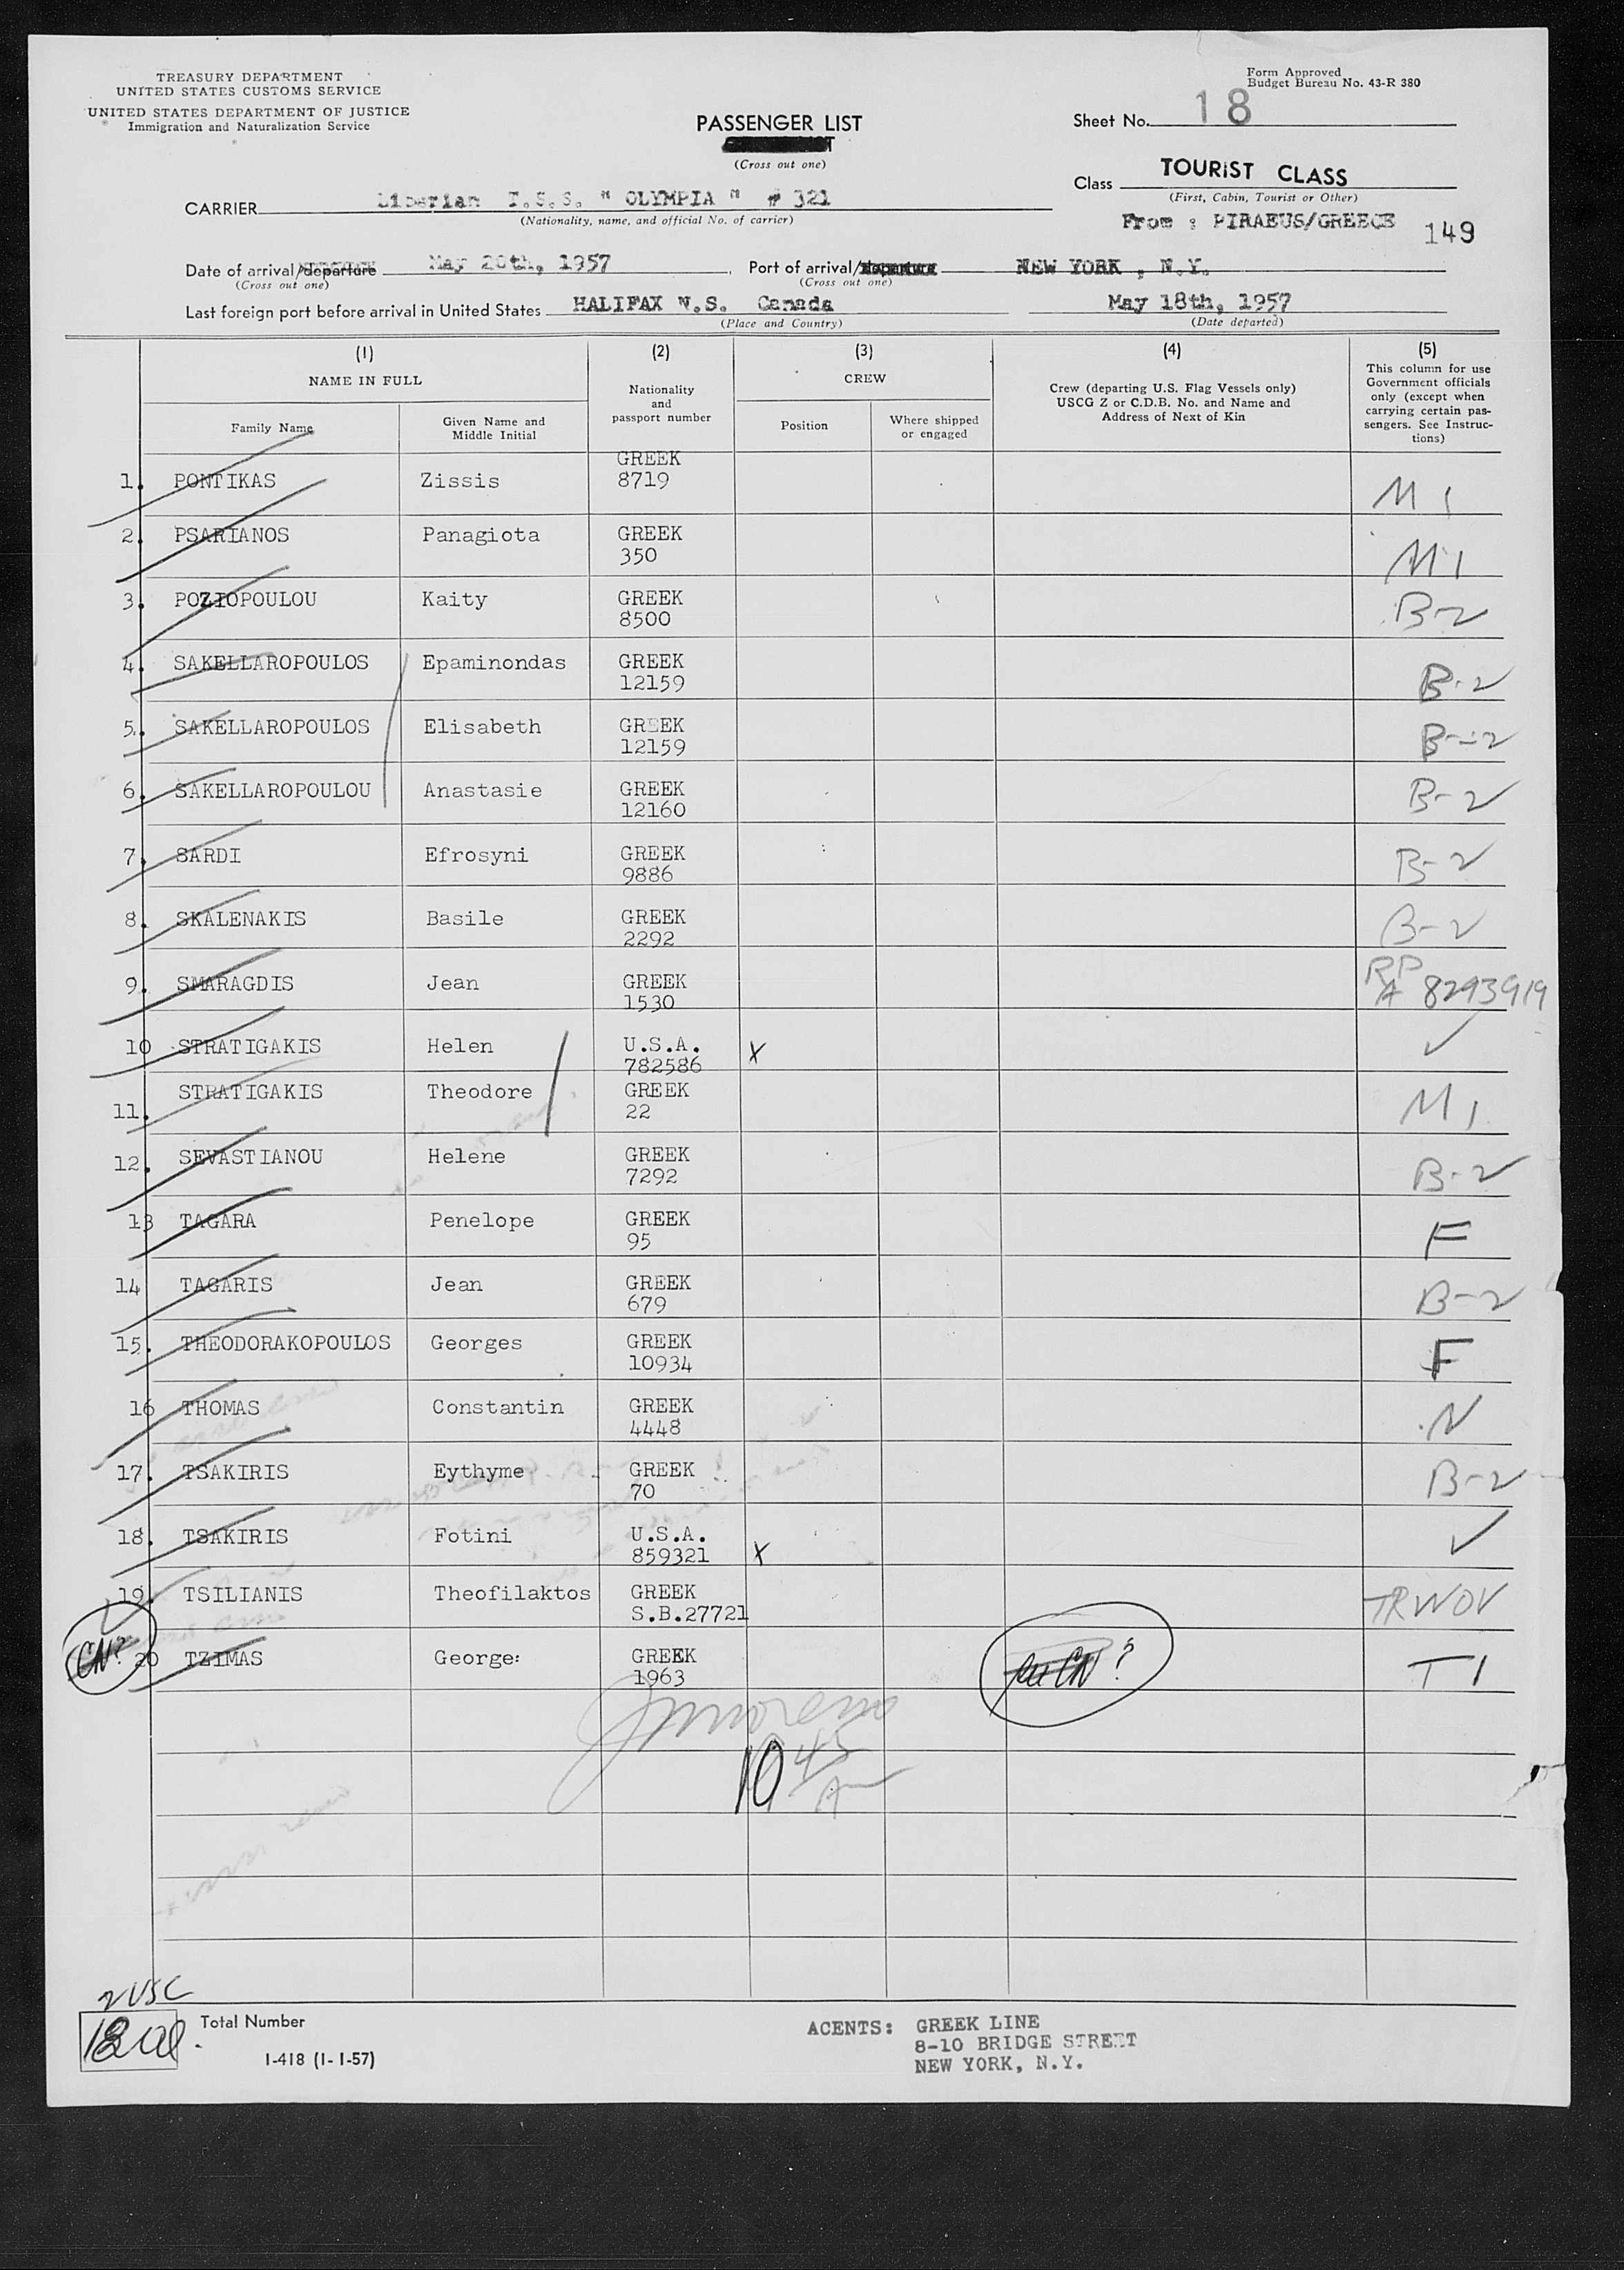 TREASURY DEPARTMENT
UNITED STATES CUSTOMS SERVICE
UNITED STATES DEPARTMENT OF JUSTICE
Immigration and Naturalization Service
Form Approved
Budget Bureau No. 43-R 380
PASSENGER LIST
(Cross out one)
Sheet No. 18
Class TOURIST CLASS
(First, Cabin, Tourist or Other)
CARRIER Liberian T.S.S. " OLYMPIA " # 321
(Nationality, name, and official No. of carrier)
From : PIRAEUS/GREECE 149
Date of arrival/departure May 20th, 1957 Port of arrival/departure NEW YORK , N.Y.
(Cross out one) (Cross out one)
Last foreign port before arrival in United States HALIFAX N.S. Canada May 18th, 1957
(Place and Country) (Date departed)
(1) (2) (3) (4) (5)
NAME IN FULL
Family Name
Given Name and Middle Initial
Nationality and passport number
CREW
Position
Where shipped or engaged
Crew (departing U.S. Flag Vessels only)
USCG Z or C.D.B. No. and Name and
Address of Next of Kin
This column for use
Government officials
only (except when
carrying certain pas-
sengers. See Instruc-
tions)
1. PONTIKAS Zissis GREEK 8719 M 1
2. PSARIANOS Panagiota GREEK 350 M 1
3. POZIOPOULOU Kaity GREEK 8500 B-2
4. SAKELLAROPOULOS Epaminondas GREEK 12159 B-2
5. SAKELLAROPOULOS Elisabeth GREEK 12159 B-2
6. SAKELLAROPOULOU Anastasie GREEK 12160 B-2
7. SARDI Efrosyni GREEK 9886 B-2
8. SKALENAKIS Basile GREEK 2292 B-2
9. SMARAGDIS Jean GREEK 1530 RP A 8293919
10 STRATIGAKIS Helen U.S.A. 782586 X ✓
11. STRATIGAKIS Theodore GREEK 22 M 1
12. SEVASTIANOU Helene GREEK 7292 B-2
13 TAGARA Penelope GREEK 95 F
14 TAGARIS Jean GREEK 679 B-2
15. THEODORAKOPOULOS Georges GREEK 10934 F
16 THOMAS Constantin GREEK 4448 N
17. TSAKIRIS Eythyme GREEK 70 B-2
18. TSAKIRIS Fotini U.S.A. 859321 X ✓
19. TSILIANIS Theofilaktos GREEK S.B.27721 TRWOV
CN?
20 TZIMAS George: GREEK 1963 CN ? T 1
10 45 A
2 USC
Total Number
I-418 (1-1-57)
ACENTS: GREEK LINE
8-10 BRIDGE STREET
NEW YORK, N.Y.